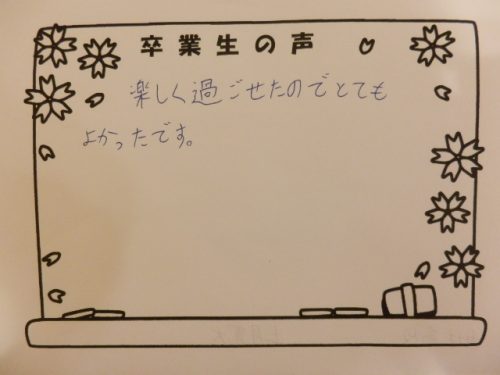 卒業生の声
楽しく過ごせたのでとても
よかったです。